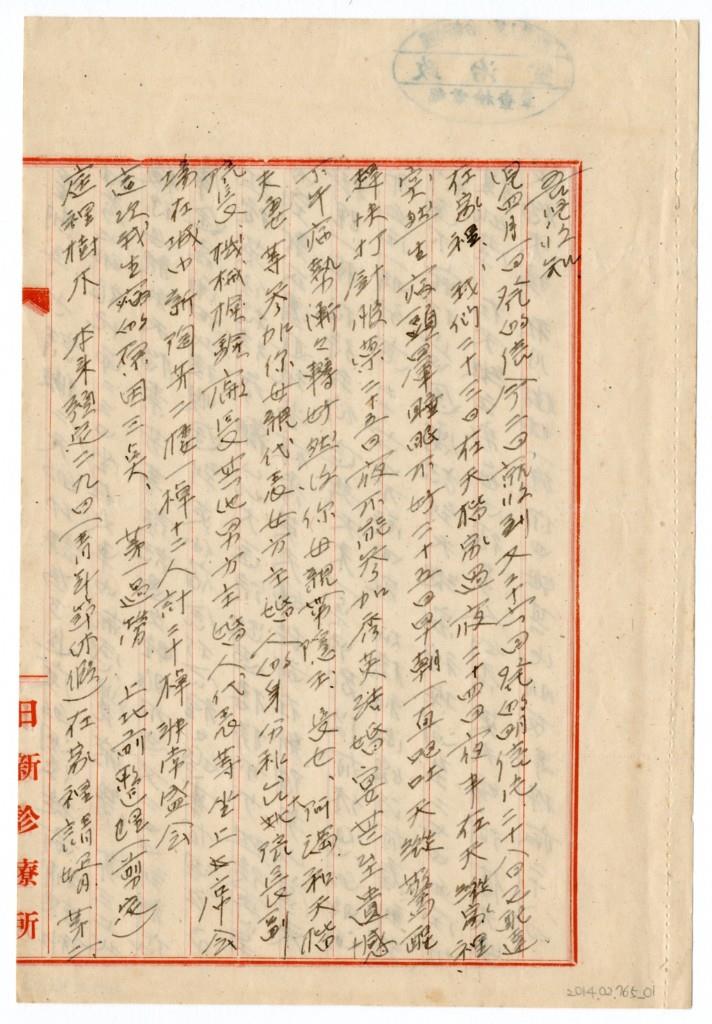 吾兒收知
兒四月一日發的信今二日就收到又二十六日發的明信片二十八日已配達
在家裡、我們二十三日在天楷家過夜二十四日夜半在天縱家裡
突然生病頭暈睡眠不好二十五日早朝一直嘔吐天縱驚醒
趕快打針服藥二十五日夜不能參加秀英結婚宴甚至遺憾
下午病勢漸々轉好然後你母親帶隱玉、安七、阿滿和天楷
夫妻等參加你母親代表女方主婚人的身分和台北院長副
院長、機械檢驗廠長其他男方主婚人代表等坐上大席會
場在城中新陶芳二樓一棹十二人計二十棹非常盛会
這次我生病的原因三點、第一過勞 上北前整理(剪定)
庭裡樹木 本來預定二九四(青年節休假)在家裡請塔 第二
日新診療所
政治
2014.02.765_01